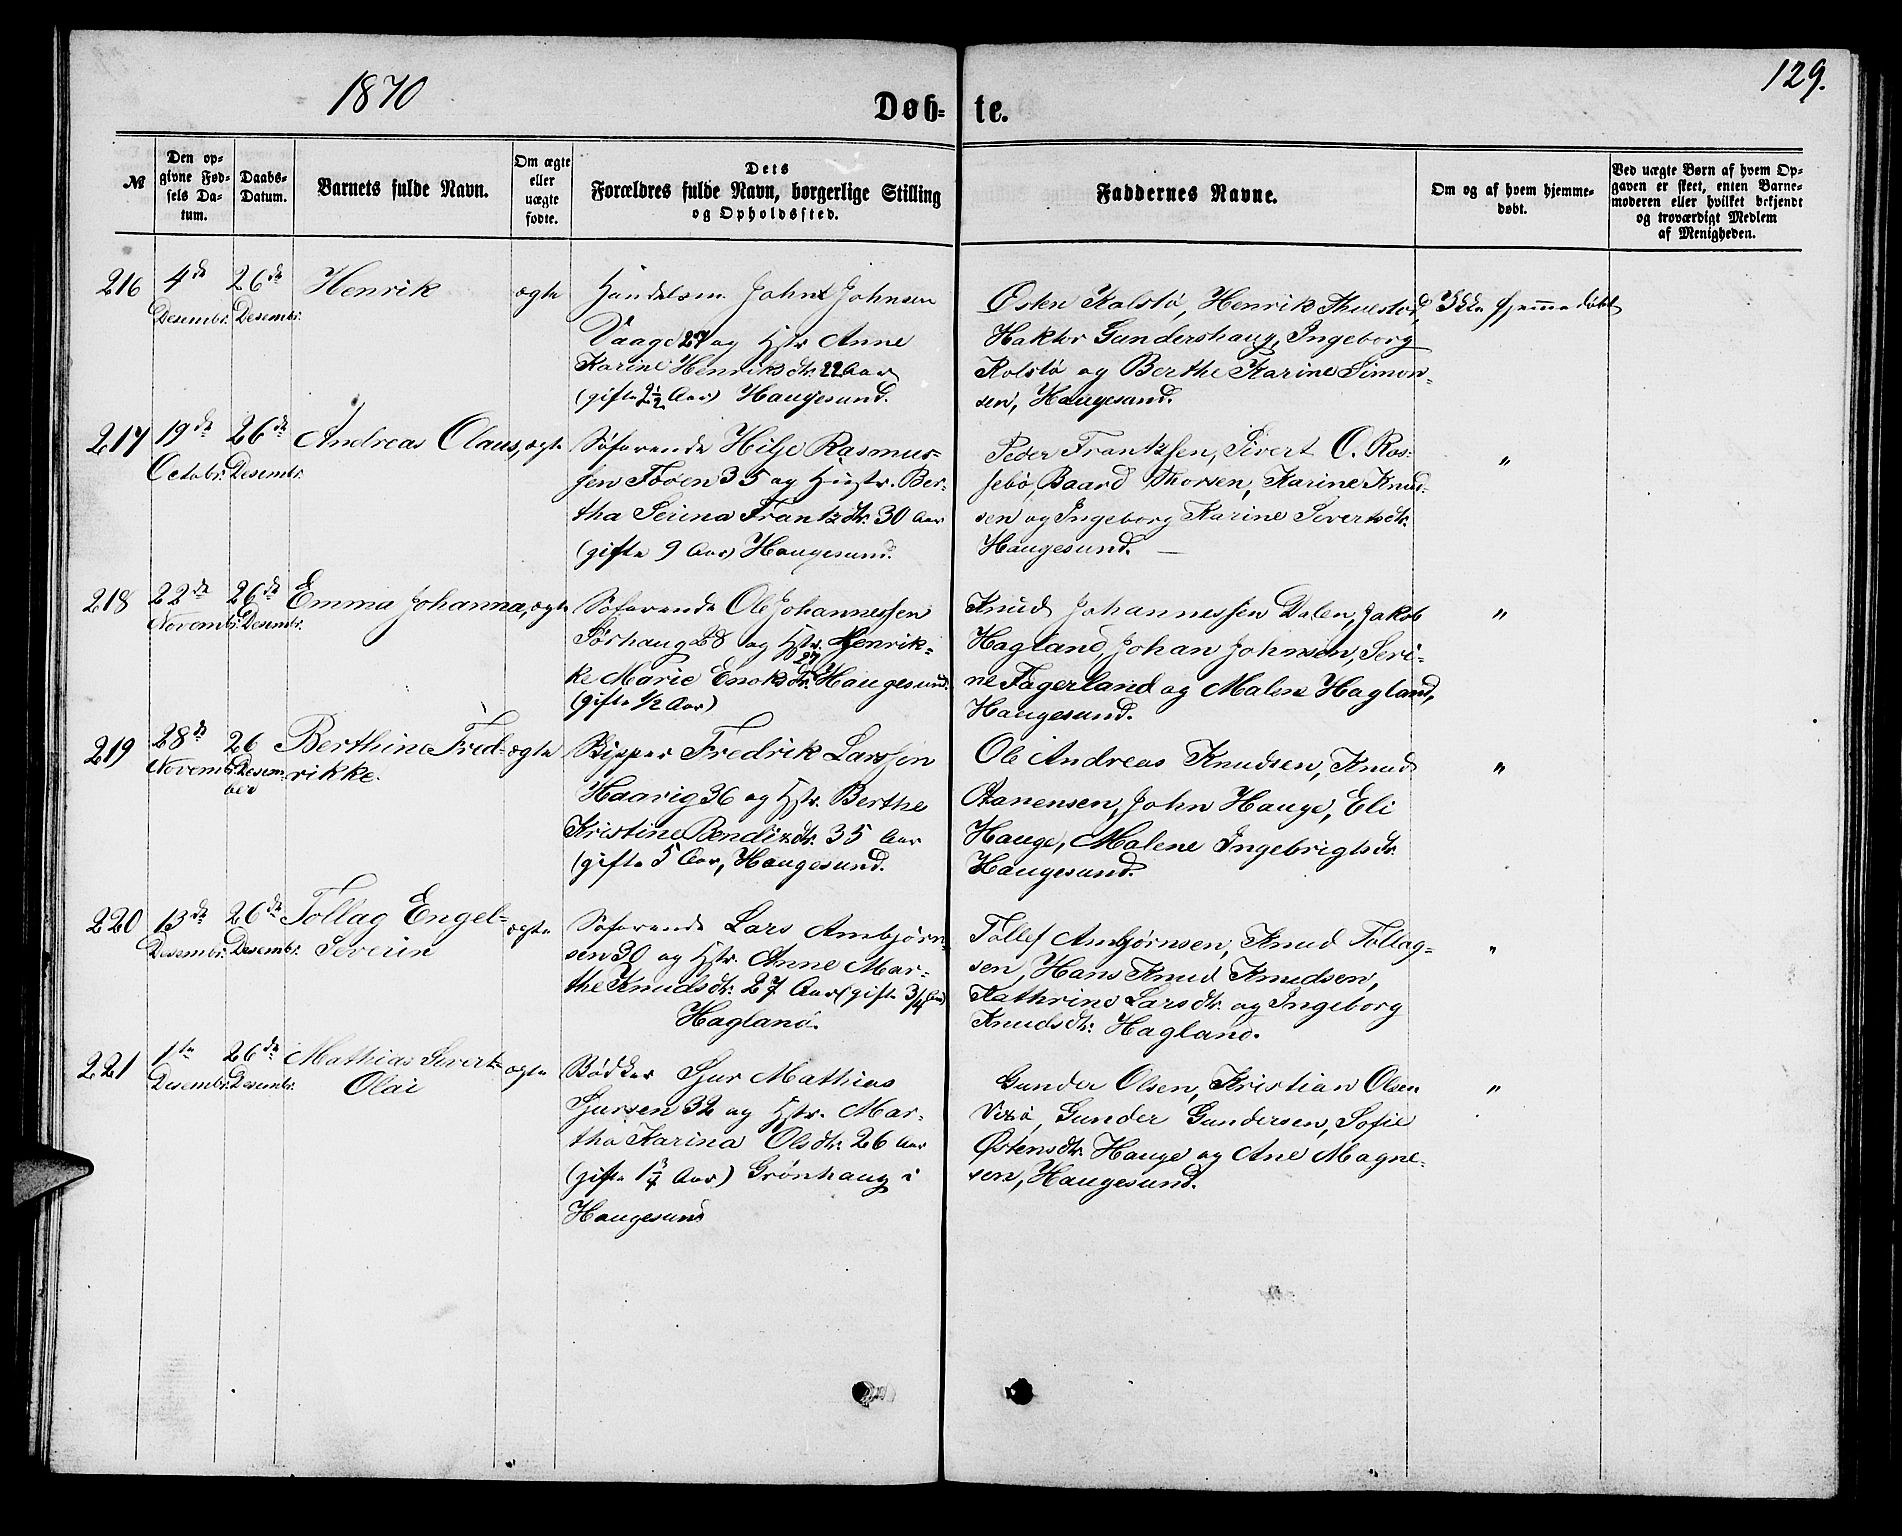 1870
Døb=
te.
129.
№
Den op=
givne Fød=
sels Da=
tum.
Daabs=
Datum.
Barnets fulde Navn.
Om ægte
eller
uægte
fødte.
Dets
Forældres fulde Navn, borgerlige Stilling
og Opholdssted.
Faddernes Navne.
Om og af hvem hjemme=
døbt.
Ved uægte Børn af hvem Op=
gaven er skeet, enten Barne=
moderen eller hvilket bekjendt
og troværdigt Medlem
af Menigheden.
216
4de
Desembr.
26de
Desembr.
Henrik
ægte
Handelsm. John Johnsen
Vaage 27 og Hstr. Anne
Karine Henriksdtr. 22 Aar
(gifte 2½ Aar) Haugesund.
Østen Kolstø, Henrik Thuestad,
Haktor Gundershaug, Ingeborg
Kolstø og Berthe Karine Simon-
sen, Haugesund.
Ikke hjemmedøbt
217
19de
Octobr.
26de
Desembr.
Andreas Olaus,
ægte
Søfarende Hilje Rasmus-
sen Toven 35 og Hustr. Ber-
tha Serina Frantzdtr. 30 Aar
(gifte 9 Aar) Haugesund.
Peder Frantzsen, Sivert O. Ros-
sebø, Baard Thorsen, Karine Knud-
sen og Ingeborg Karine Sivertsdtr.
Haugesund. —
"
218
22de
Novembr.
26de
Desembr.
Emma Johanna,
ægte
Søfarende Ole Johannessen
Sørhaug 28 og Hstr. Henrik-
ke Marie Enoksdtr. 27 Haugesund.
(gifte 1/2 Aar)
Knud Johannessen Dalen, Jakob
Hagland, Johan Johnsen, Seri-
ne Fagerland og Malene Hagland,
Haugesund.
"
219
28de
Novembr.
26
Desem-
ber
Berthine Fred-
rikke.
ægte
Skipper Fredrik Larssen
Haarig 36 og Hstr. Berthe
Kristine Bendixdtr. 35 Aar
(gifte 5 Aar, Haugesund.
Ole Andreas Knudsen, Knud
Aanensen, John Hauge, Eli
Hauge, Malene Ingebrigtsdtr.
Haugesund.
"
220
13de
Desembr.
26de
Desembr.
Tollag Engel-
Severin
ægte
Søfarende Lars Ambjørn-
sen 30 og Hstr. Anne Mar-
the Knudsdtr. 27 Aar (gifte 3/4 Aar)
Hagland.
Tollef Ambjørnsen, Knud Tollag-
sen, Hans Knud Knudsen,
Kathrine Larsdtr. og Ingeborg
Knudsdtr. Hagland.
"
221
1te
Desembr.
26de
Desembr.
Mathias Sivert
Olai
ægte
Bødker Sjur Mathias
Sjursen 32 og Hstr. Mar-
tha Karina Olsdtr. 26 Aar
(gifte 1¾ Aar) Grønhaug i
Haugesund
Gunder Olsen, Kristian Olsen
Gunder Gundersen, Sofie
Østensdtr. Hauge og Ane Magne-
sen, Haugesund.
"